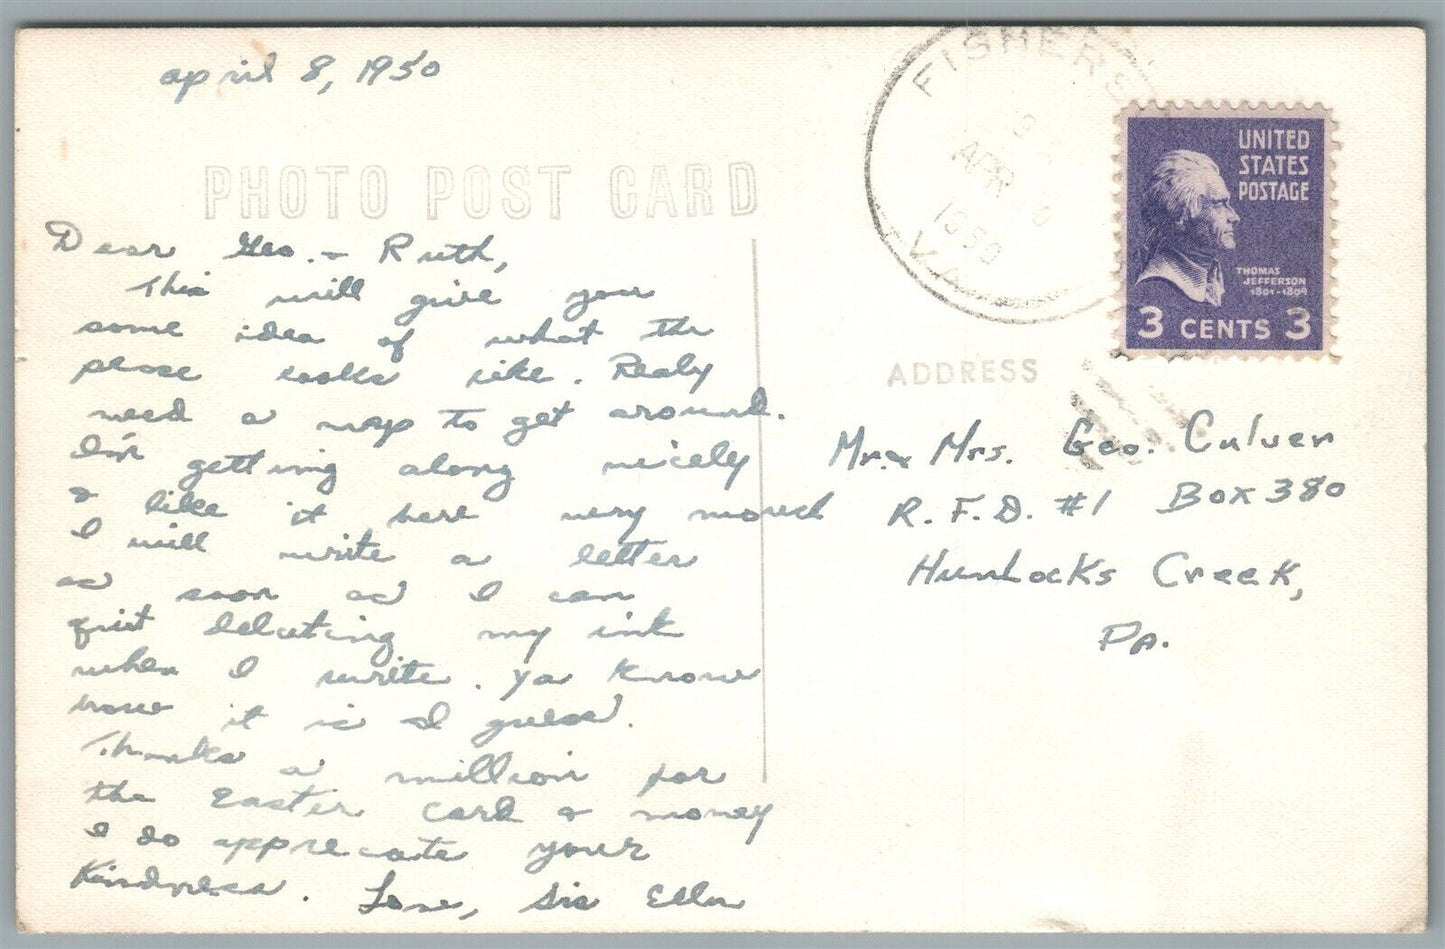 april 8, 1950
PHOTO POST CARD
Dear Geo. & Ruth,
This will give you
some idea of what the
place looks like. Realy
need a map to get around.
I'm getting along nicely
& like it here very much
I will write a letter
as soon as I can
quit deluting my ink
when I write. Ya know
how it is I guess.
Thanks a million for
the Easter card & money
I do apprecate your
Kindness. Love, Sis Ella
FISHERS
APR 10
1950
VA.
UNITED
STATES
POSTAGE
THOMAS
JEFFERSON
1801-1809
3 CENTS 3
ADDRESS
Mr. & Mrs. Geo. Culver
R.F.D. #1 Box 380
Hunlocks Creek,
Pa.